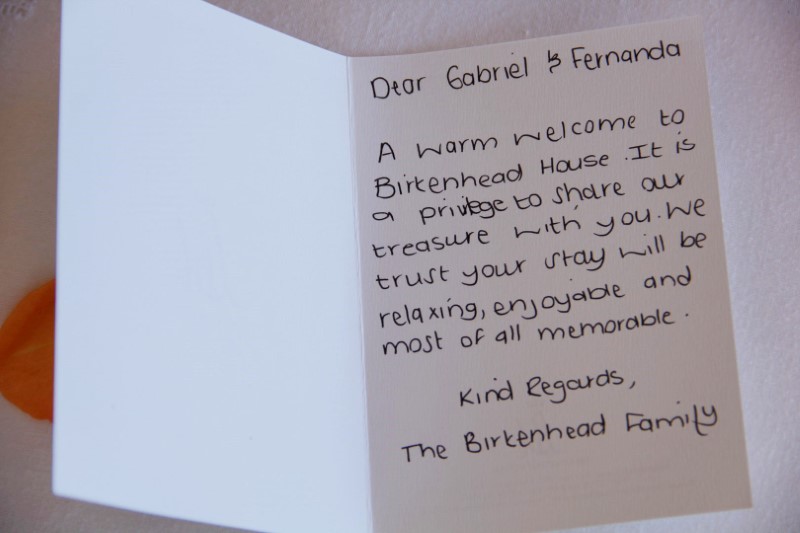 Dear Gabriel & Fernanda
A warm welcome to
Birkenhead House. It is
a privilege to share our
treasure with you. We
trust your stay will be
relaxing, enjoyable and
most of all memorable.
Kind Regards,
The Birkenhead Family